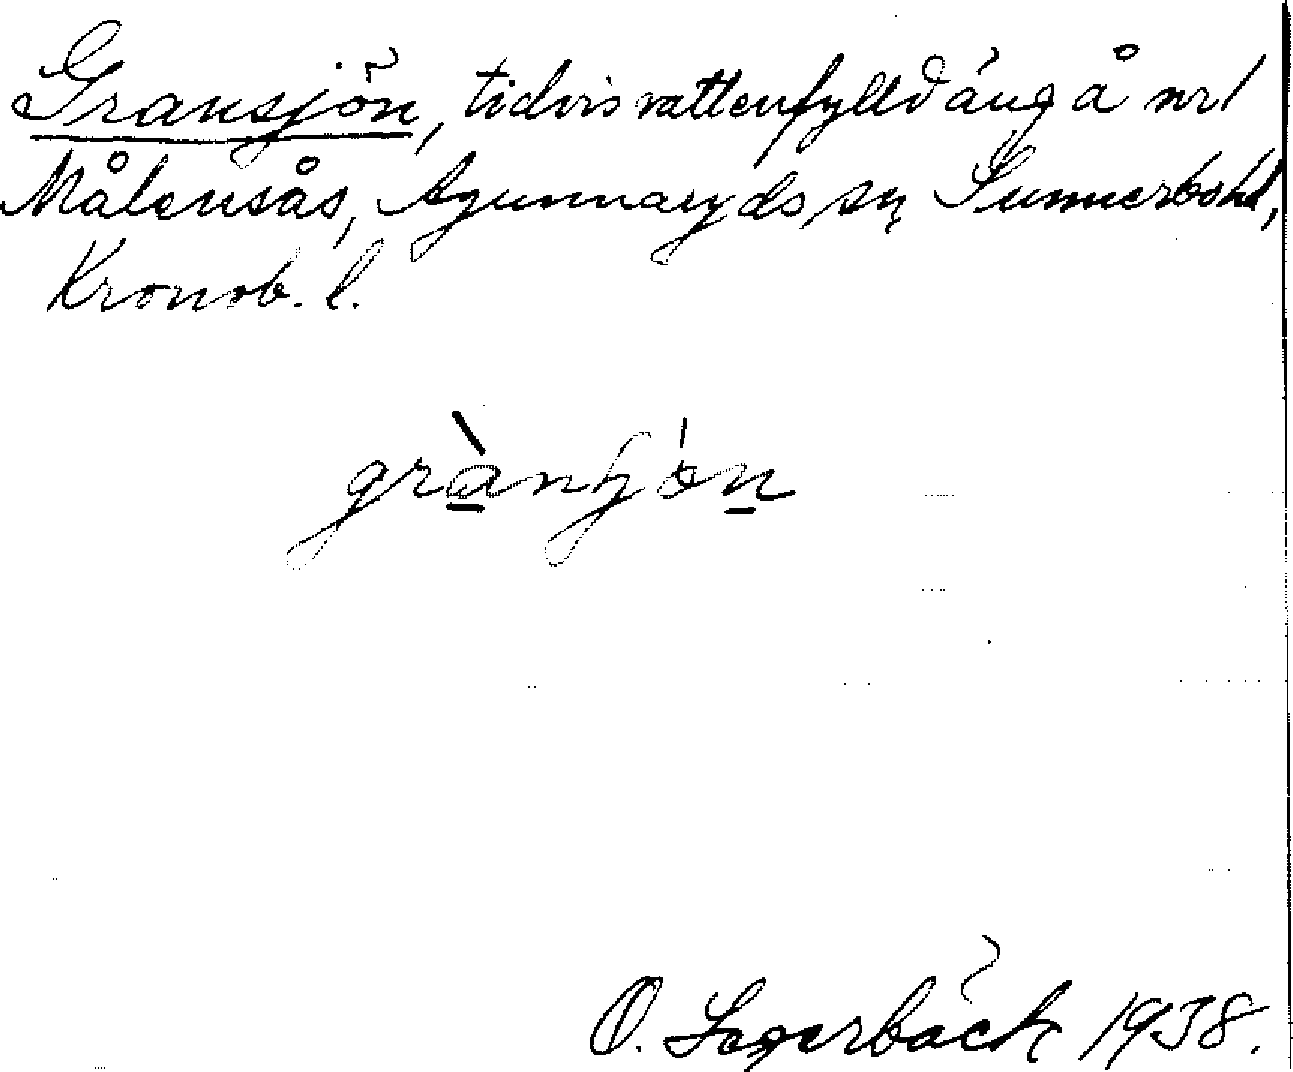 Gransjön, tidvis vattenfylld äng å nr 1
Målensås, Agunnaryds sn, Sunnerbo hd,
Kronob. l.
O. Lagerbäck 1938.